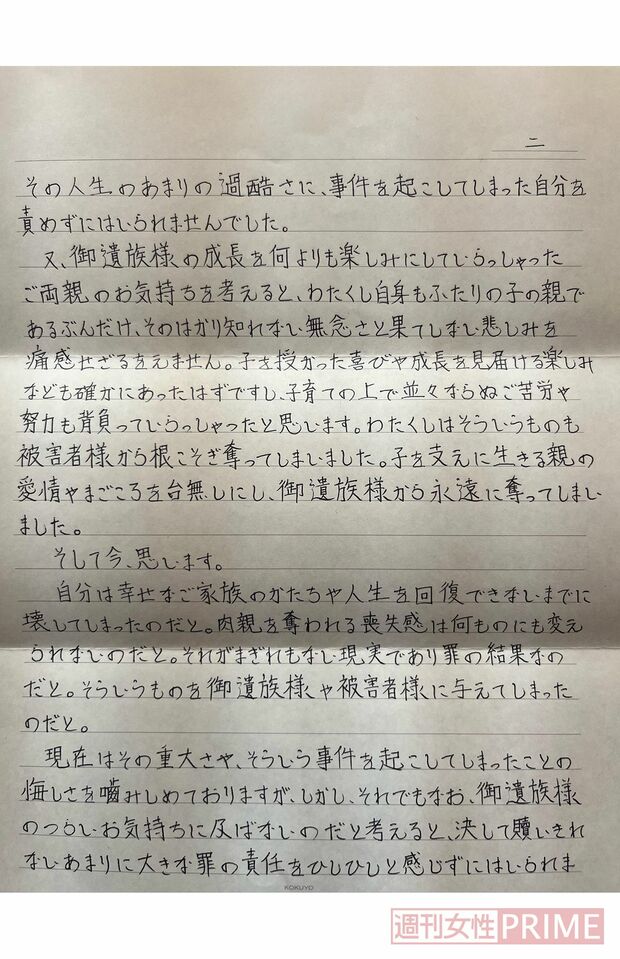 二
その人生のあまりの過酷さに、事件を起こしてしまった自分を
責めずにはいられませんでした。
又、御遺族様の成長を何よりも楽しみにしていらっしゃった
ご両親のお気持ちを考えると、わたくし自身もふたりの子の親で
あるぶんだけ、そのはかり知れない無念さと果てしない悲しみを
痛感せざるをえません。子を授かった喜びや成長を見届ける楽しみ
なども確かにあったはずですし、子育ての上で並々ならぬご苦労や
努力も背負っていらっしゃったと思います。わたくしはそういうものも
被害者様から根こそぎ奪ってしまいました。子を支えに生きる親の
愛情やまごころを台無しにし、御遺族様から永遠に奪ってしまい
ました。
そして今、思います。
自分は幸せなご家族のかたちや人生を回復できないまでに
壊してしまったのだと。肉親を奪われる喪失感は何ものにも変え
られないのだと。それがまぎれもない現実であり罪の結果なの
だと。そういうものを御遺族様や被害者様に与えてしまった
のだと。
現在はその重大さや、そういう事件を起こしてしまったことの
悔しさを噛みしめておりますが、しかし、それでもなお、御遺族様
のつらいお気持ちに及ばないのだと考えると、決して贖いきれ
ないあまりに大きな罪の責任をひしひしと感じずにはいられま
KOKUYO
週刊女性PRIME